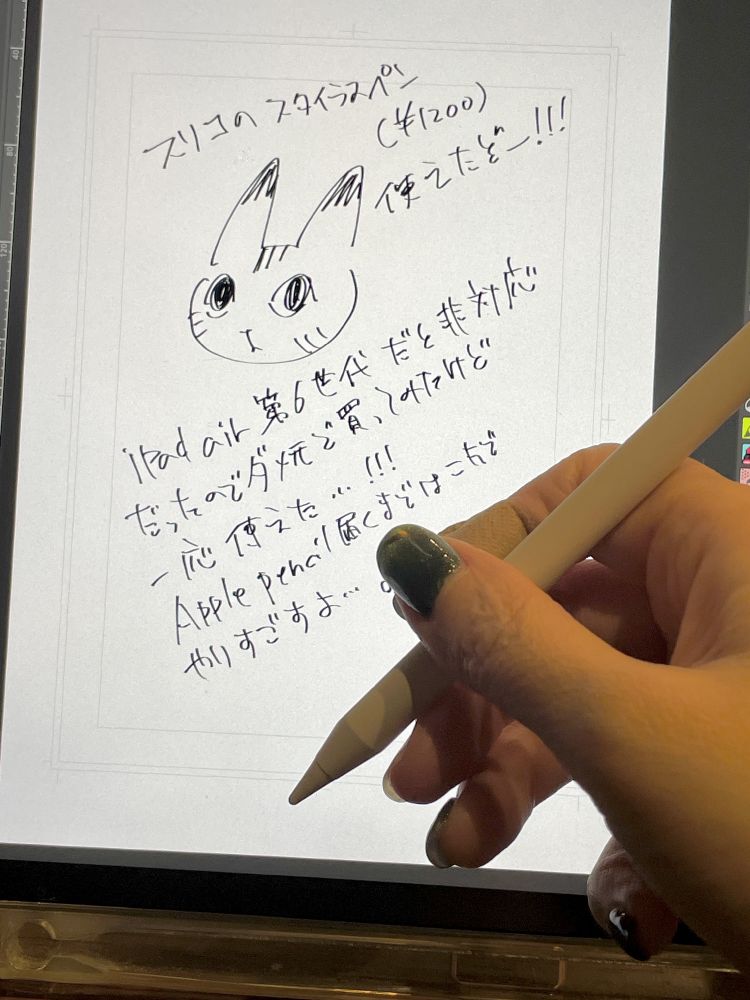 スリコの スタイラスペン
(¥1200)
使えたぞー!!!
iPad air 第6世代 だと非対応
だったのでダメ元で買ってみたけど
一応 使えた…!!!
Apple pencil 届くまではこれで
やりすごすよ…
40
80
120